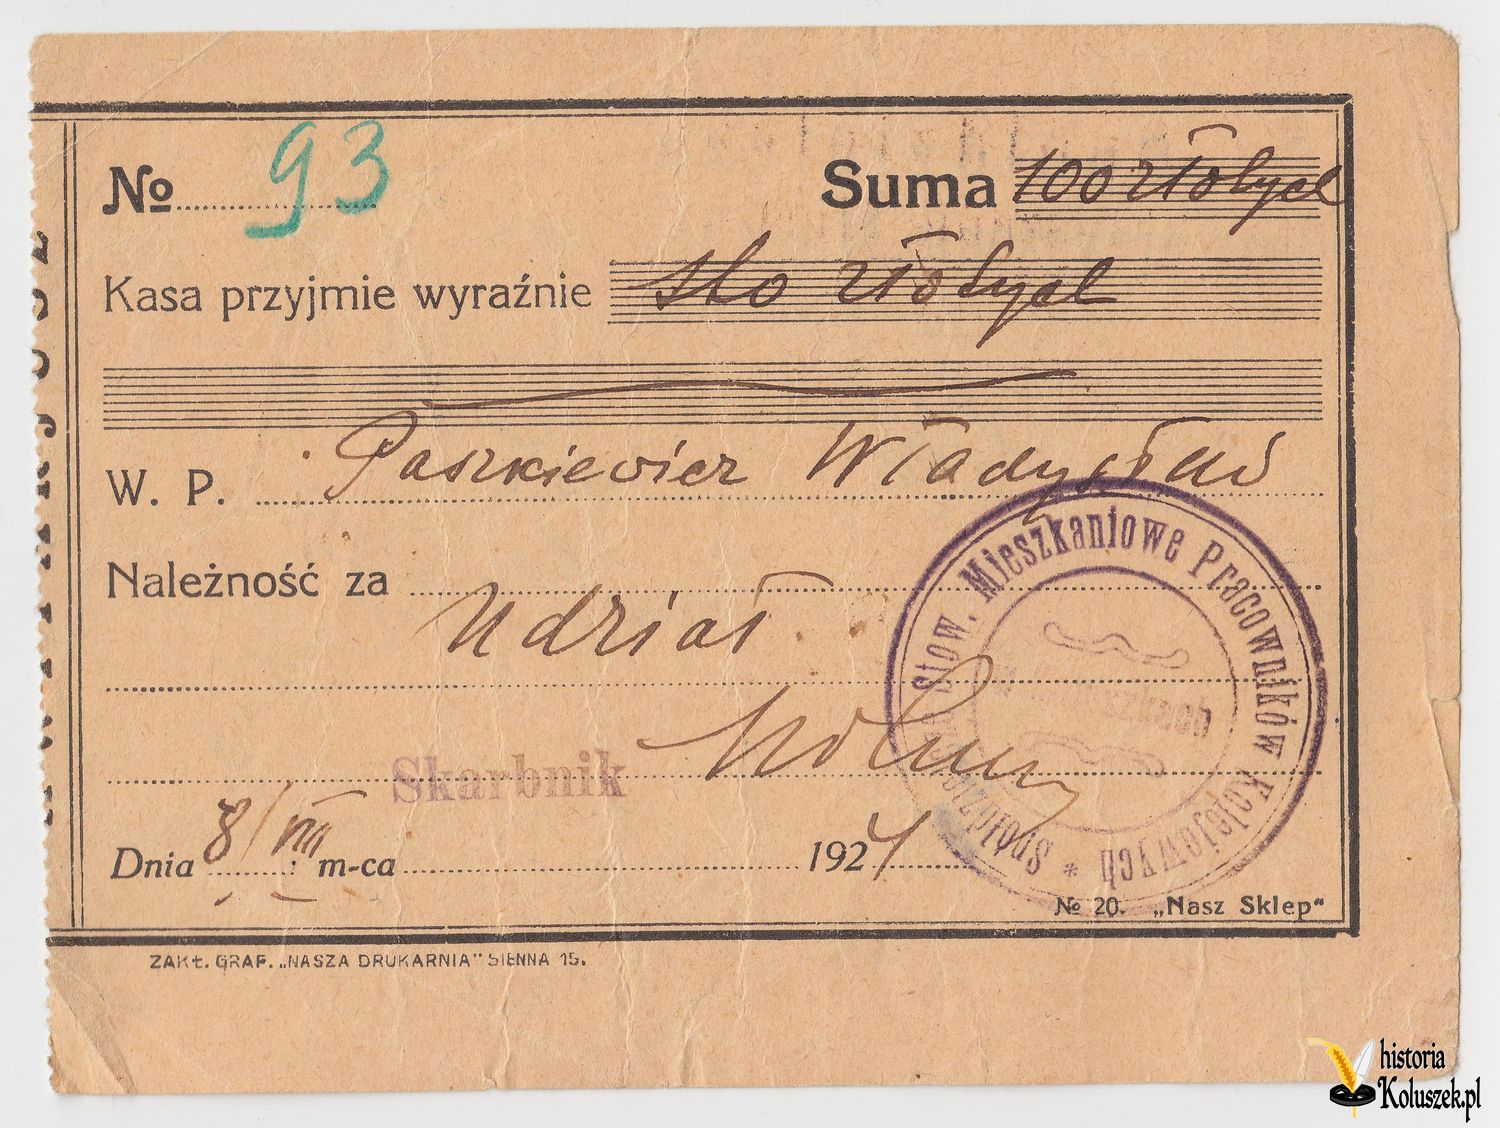 № 93 Suma 100 złotych
Kasa przyjmie wyraźnie sto złotych
W. P. Paszkiewicz Władysław
Należność za
Udział
Skarbnik
Dnia 8/VIII m-ca 192
Spółdzielcze Stow. Mieszkaniowe Pracowników Kolejowych *
w Koluszkach
№ 20. „Nasz Sklep“
ZAKŁ. GRAF. „NASZA DRUKARNIA” SIENNA 15.
historia
Koluszek.pl